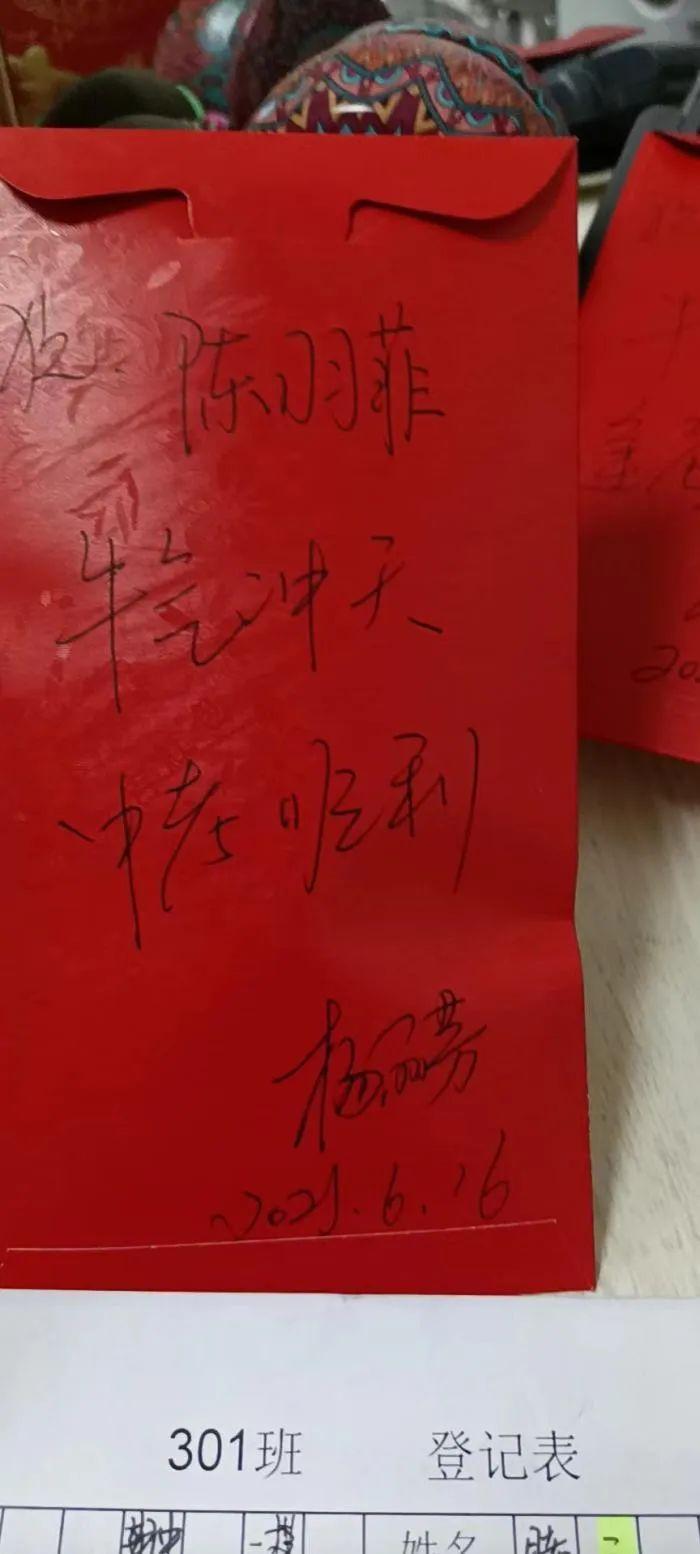 祝 陈羽菲
牛气冲天
中考顺利
杨丽芳
2021.6.16
301班 登记表
姓名